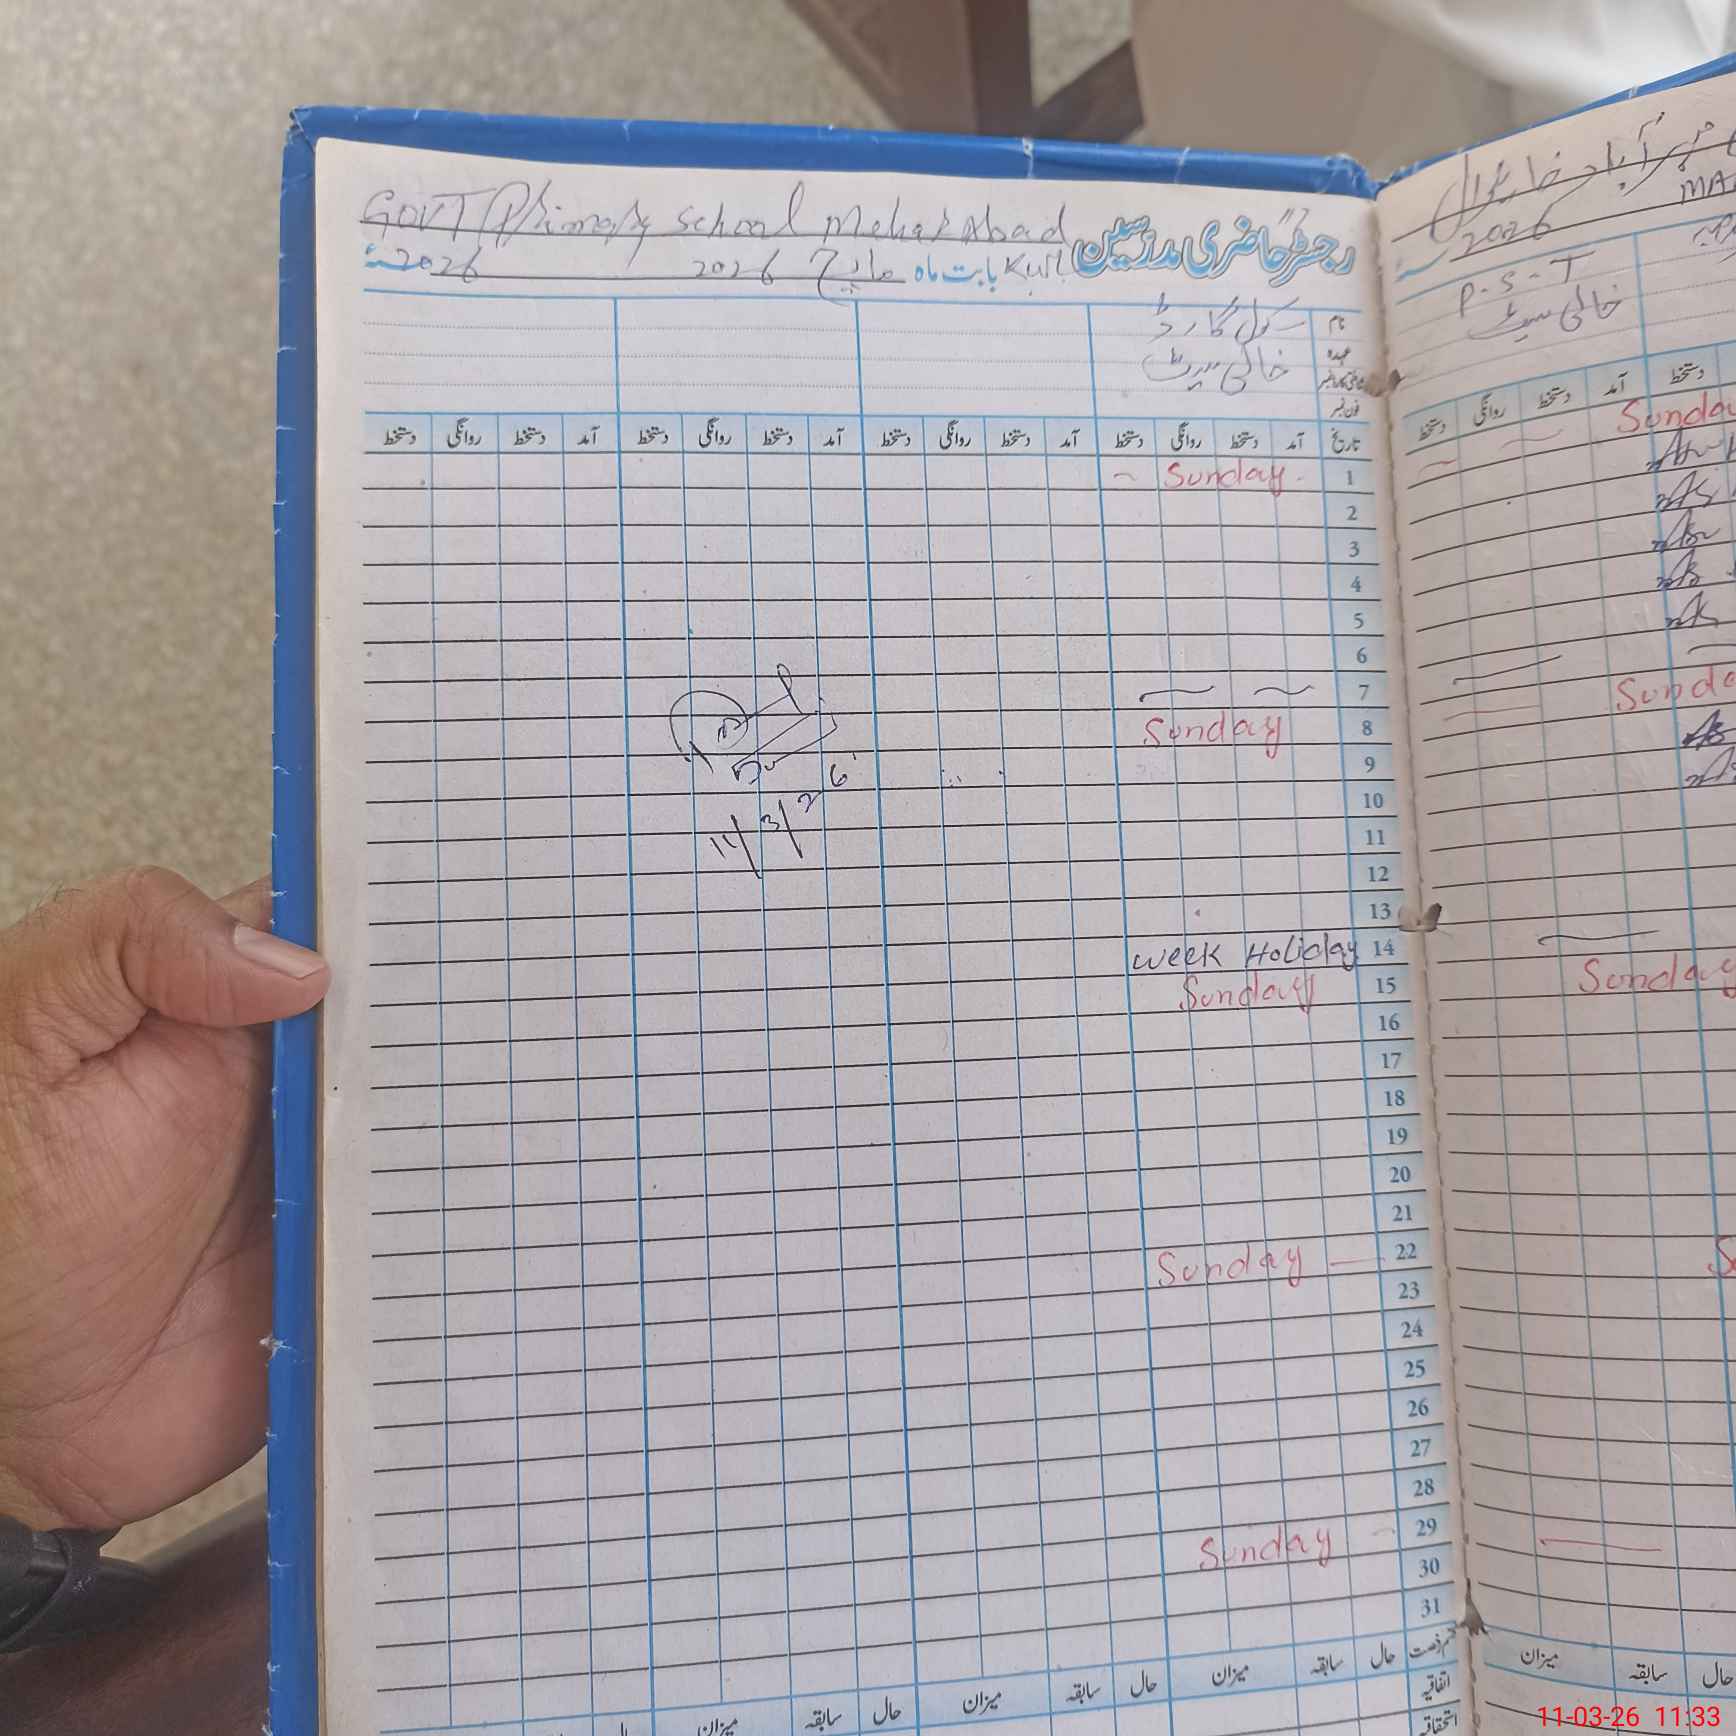 GOVT Primary School Mehar Abad
رجسٹر حاضری مدرسین
Kwl بابت ماہ مارچ 2026
2026ء
نام سکول گارڈ
عہدہ خالی سیٹ
فون نمبر
تاریخ آمد دستخط روانگی دستخط آمد دستخط روانگی دستخط آمد دستخط روانگی دستخط آمد دستخط روانگی دستخط
1 Sunday
2
3
4
5
6
7
8 Sunday
9
10
11
12
13
14 week Holiday
15 Sunday
16
17
18
19
20
21
22 Sunday
23
24
25
26
27
28
29 Sunday
30
31
11/3/26
حال سابقہ میزان حال سابقہ میزان حال سابقہ میزان حال
اتفاقیہ
استحقاقیہ
مہر آباد خانیوال
2026
P.S.T
خالی سیٹ
دستخط آمد دستخط روانگی دستخط
Sunday
Sunday
Sunday
میزان سابقہ حال
11-03-26 11:33